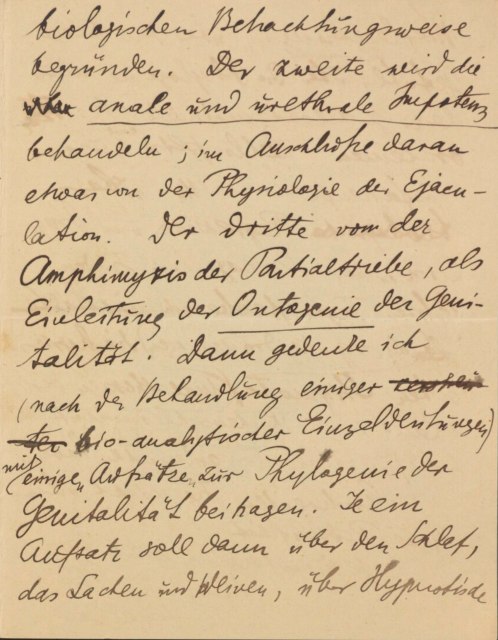 biologischen Betrachtungsweise
begründen. Der zweite wird die
anale und urethrale Impotenz
behandeln; im Anschlusse daran
etwas von der Physiologie der Ejacu-
lation. Der dritte von der
Amphimyxis der Partialtriebe, als
Einleitung der Ontogenie der Geni-
talität. Dann gedenke ich
(nach der Behandlung einiger
bio-analytischer Einzeldeutungen)
mit
einige Aufsätze zur Phylogenie der
Genitalität beitragen. Je ein
Aufsatz soll dann über den Schlaf,
das Lachen und Weinen, über Hypnotische